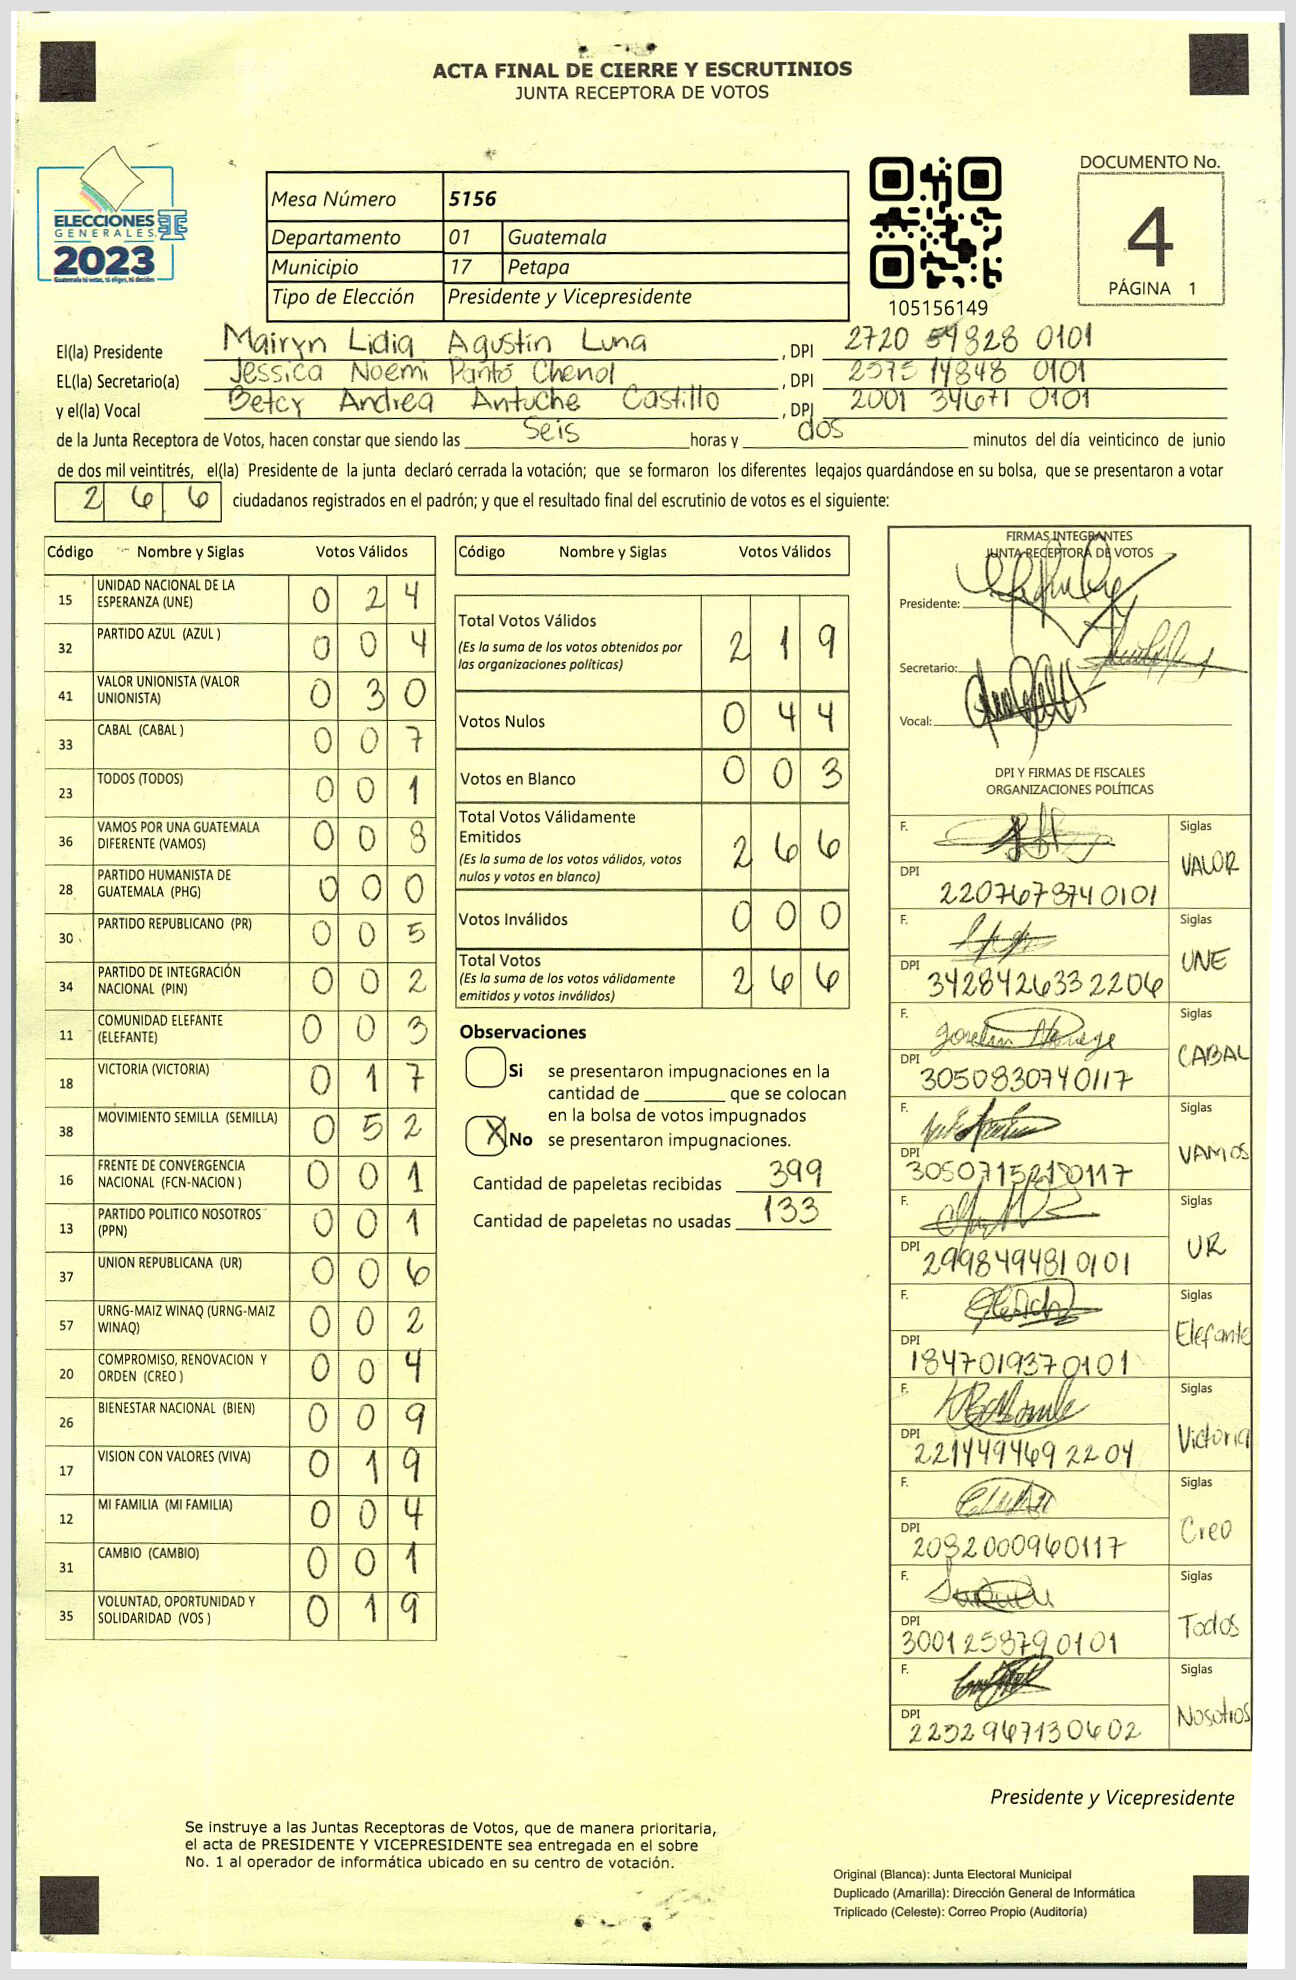 ACTA FINAL DE CIERRE Y ESCRUTINIOS
JUNTA RECEPTORA DE VOTOS
ELECCIONES
GENERALES
2023
Mesa Número 5156
Departamento 01 Guatemala
Municipio 17 Petapa
Tipo de Elección Presidente y Vicepresidente
105156149
DOCUMENTO No.
4
PÁGINA 1
El(la) Presidente Mairyn Lidia Agustin Luna , DPI 2720 54828 0101
EL(la) Secretario(a) Jessica Noemi Pantó Chenol , DPI 2575 14848 0101
y el(la) Vocal Betcy Andrea Antuche Castillo , DPI 2001 34671 0101
de la Junta Receptora de Votos, hacen constar que siendo las Seis horas y dos minutos del día veinticinco de junio
de dos mil veintitrés, el(la) Presidente de la junta declaró cerrada la votación; que se formaron los diferentes legajos guardándose en su bolsa, que se presentaron a votar
2 6 6 ciudadanos registrados en el padrón; y que el resultado final del escrutinio de votos es el siguiente:
Código Nombre y Siglas Votos Válidos
15 UNIDAD NACIONAL DE LA ESPERANZA (UNE) 0 2 4
32 PARTIDO AZUL (AZUL ) 0 0 4
41 VALOR UNIONISTA (VALOR UNIONISTA) 0 3 0
33 CABAL (CABAL ) 0 0 7
23 TODOS (TODOS) 0 0 1
36 VAMOS POR UNA GUATEMALA DIFERENTE (VAMOS) 0 0 8
28 PARTIDO HUMANISTA DE GUATEMALA (PHG) 0 0 0
30 PARTIDO REPUBLICANO (PR) 0 0 5
34 PARTIDO DE INTEGRACIÓN NACIONAL (PIN) 0 0 2
11 COMUNIDAD ELEFANTE (ELEFANTE) 0 0 3
18 VICTORIA (VICTORIA) 0 1 7
38 MOVIMIENTO SEMILLA (SEMILLA) 0 5 2
16 FRENTE DE CONVERGENCIA NACIONAL (FCN-NACION ) 0 0 1
13 PARTIDO POLITICO NOSOTROS (PPN) 0 0 1
37 UNION REPUBLICANA (UR) 0 0 6
57 URNG-MAIZ WINAQ (URNG-MAIZ WINAQ) 0 0 2
20 COMPROMISO, RENOVACION Y ORDEN (CREO ) 0 0 4
26 BIENESTAR NACIONAL (BIEN) 0 0 9
17 VISION CON VALORES (VIVA) 0 1 9
12 MI FAMILIA (MI FAMILIA) 0 0 4
31 CAMBIO (CAMBIO) 0 0 1
35 VOLUNTAD, OPORTUNIDAD Y SOLIDARIDAD (VOS ) 0 1 9
Código Nombre y Siglas Votos Válidos
Total Votos Válidos 2 1 9
(Es la suma de los votos obtenidos por
las organizaciones políticas)
Votos Nulos 0 4 4
Votos en Blanco 0 0 3
Total Votos Válidamente
Emitidos 2 6 6
(Es la suma de los votos válidos, votos
nulos y votos en blanco)
Votos Inválidos 0 0 0
Total Votos 2 6 6
(Es la suma de los votos válidamente
emitidos y votos inválidos)
Observaciones
Si se presentaron impugnaciones en la
cantidad de ________ que se colocan
en la bolsa de votos impugnados
X No se presentaron impugnaciones.
Cantidad de papeletas recibidas 399
Cantidad de papeletas no usadas 133
FIRMAS INTEGRANTES
JUNTA RECEPTORA DE VOTOS
Presidente:
Secretario:
Vocal:
DPI Y FIRMAS DE FISCALES
ORGANIZACIONES POLÍTICAS
F. Siglas VALOR
DPI 2207678740101
F. Siglas UNE
DPI 3428426332206
F. Siglas CABAL
DPI 3050830740117
F. Siglas VAMOS
DPI
F. Siglas UR
DPI 2998494810101
F. Siglas Elefante
DPI 1847019370101
F. Siglas Victoria
DPI 2214494692204
F. Siglas Creo
DPI 2082000960117
F. Siglas Todos
DPI 3001258790101
F. Siglas Nosotros
DPI 2252967130602
Presidente y Vicepresidente
Se instruye a las Juntas Receptoras de Votos, que de manera prioritaria,
el acta de PRESIDENTE Y VICEPRESIDENTE sea entregada en el sobre
No. 1 al operador de informática ubicado en su centro de votación.
Original (Blanca): Junta Electoral Municipal
Duplicado (Amarilla): Dirección General de Informática
Triplicado (Celeste): Correo Propio (Auditoría)